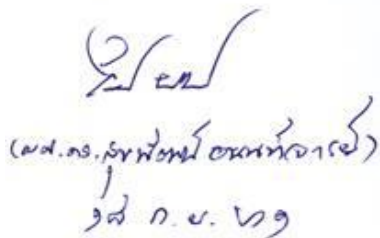 (ผศ.ดร.สุขพัฒน์ อนนท์จารย์)
๑๘ ก.ย. ๖๑